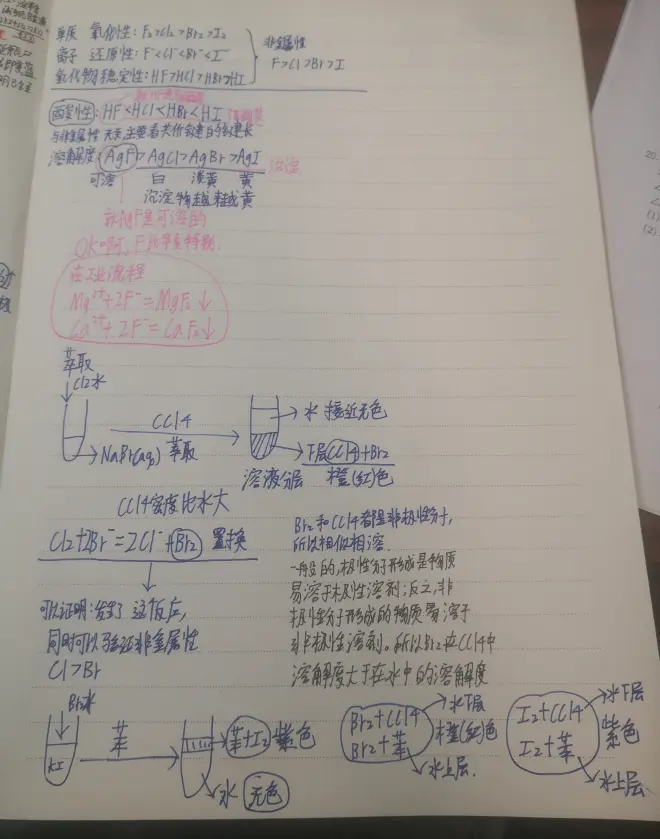 单质 氧化性: F₂>Cl₂>Br₂>I₂
离子 还原性: F⁻<Cl⁻<Br⁻<I⁻
氢化物稳定性: HF>HCl>HBr>HI
非金属性
F>Cl>Br>I
酸性: HF<HCl<HBr<HI
与非金属性无关,主要看共价键键长
溶解度: AgF>AgCl>AgBr>AgI 沉淀
可溶 白 淡黄 黄
沉淀物越来越黄
AgF是可溶的
OK啊,F
在工业流程
Mg²⁺+2F⁻=MgF₂↓
Ca²⁺+2F⁻=CaF₂↓
萃取
↓Cl₂水
CCl4
→NaBr(aq) 萃取
→水 接近无色
→下层CCl4+Br₂
溶液分层 橙(红)色
CCl4密度比水大
Cl₂+2Br⁻=2Cl⁻+Br₂ 置换
可以证明:发生了这个反应,
同时可以验证非金属性
Cl>Br
Br₂和CCl4都是非极性分子,
所以相似相溶.
一般的,极性分子形成的物质
易溶于极性溶剂;反之,非
极性分子形成的物质易溶于
非极性溶剂。所以Br₂在CCl4中
溶解度大于在水中的溶解度
Br₂水
KI
苯
→苯+I₂ 紫色
→水 无色
→水下层
Br₂+CCl4
Br₂+苯
橙(红)色
→水上层.
→水下层
I₂+CCl4
I₂+苯
紫色
→水上层
20.
(1)
(2)